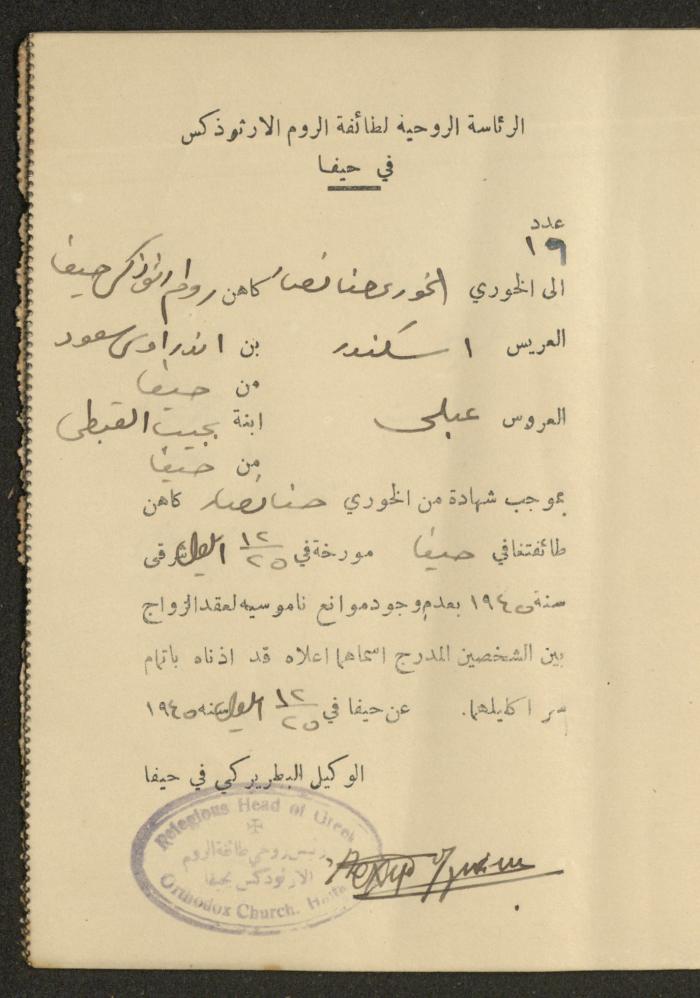 الرئاسة الروحية لطائفة الروم الارثوذكس
في حيفا
عدد
١٩
الى الخوري الخوري حنا نصار كاهن روم ارثوذكس حيفا
العريس اسكندر بن اندراوس سعود
من حيفا
العروس عبلى ابنة نجيب القبطي
من حيفا
بموجب شهادة من الخوري حنا نصار كاهن
طائفتنا في حيفا مورخة في ١٢/٢٥ ايلول شرقي
سنة ١٩٤٥ بعدم وجود موانع ناموسيه لعقد الزواج
بين الشخصين المدرج اسماهما اعلاه قد اذناه باتمام
سر اكليلهما. عن حيفا في ١٢/٢٥ ايلول سنه ١٩٤٥
الوكيل البطريركي في حيفا
Relegious Head of Greek
رئيس روحي طائفة الروم
الارثوذكس بحيفا
Orthodox Church. Haifa